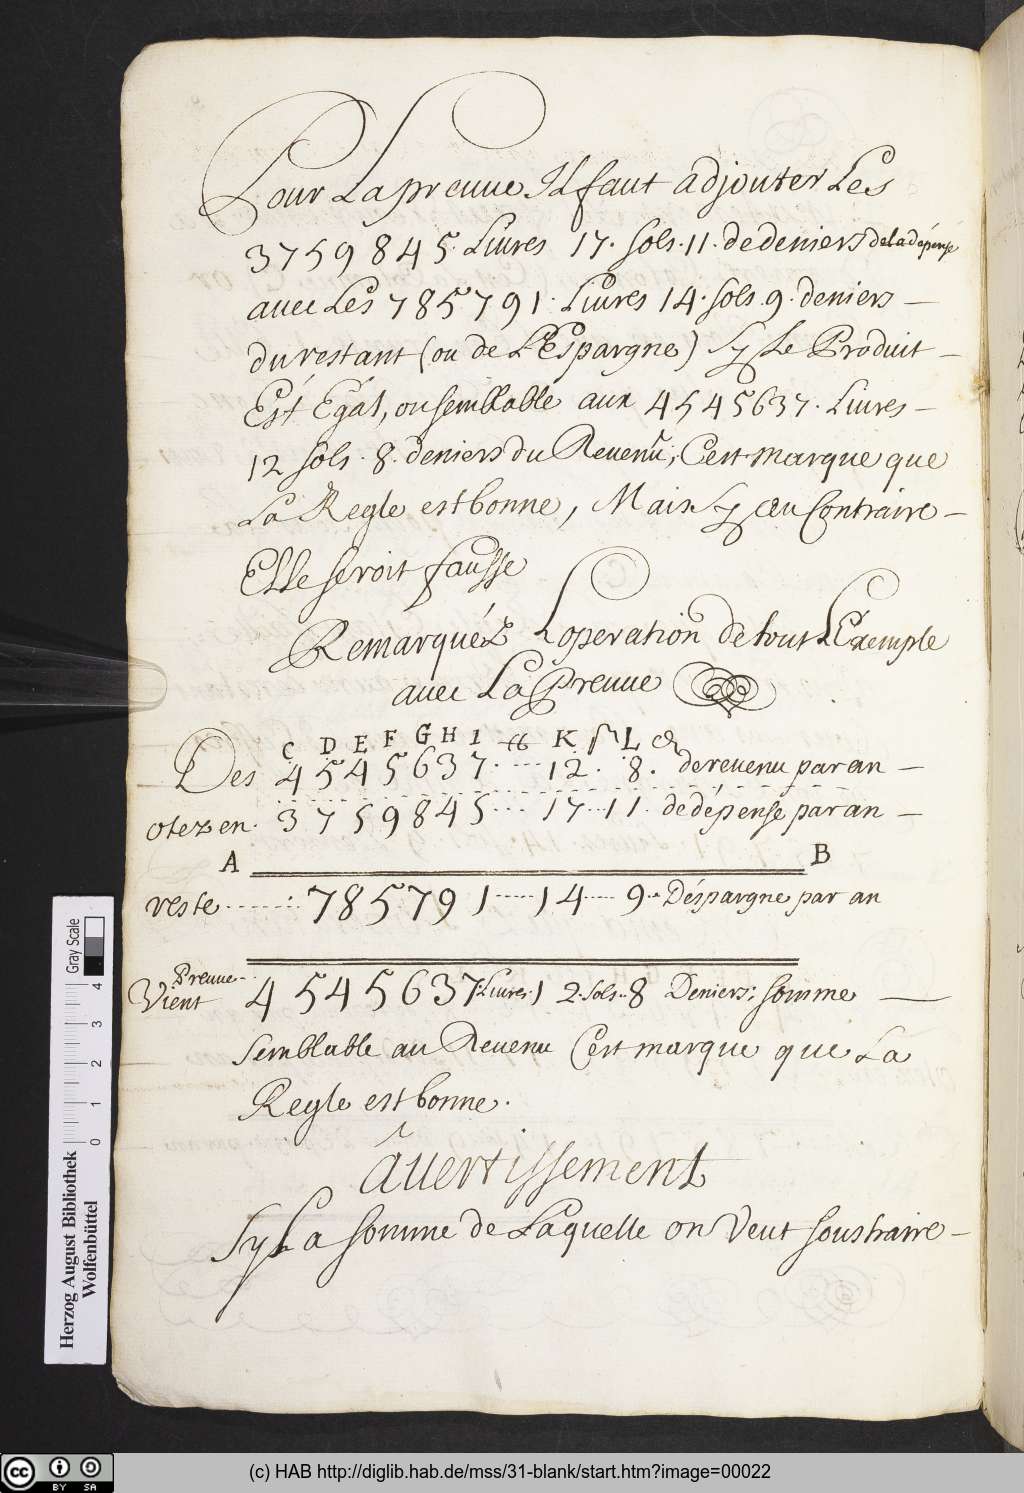 Pour La preuue Il faut adjouter Les
3759845. Liures 17. sols. 11. de deniers de la dépense
auec Les 785791. Liures 14. sols. 9. deniers —
du restant (ou de L'Espargne) Sy Le Produit —
Est Egal, ou semblable aux 4545637. Liures —
12 sols. 8. deniers du Reuenu; C'est marque que
La Regle est bonne, Mais Sy au Contraire —
Elle seroit fausse
Remarquéz L'operation de tout L'Exemple
auec La Preuue
C D E F G H I ₶ K ſ L &
Des 4545637. .... 12. 8. de reuenu par an —
otez en. 3759845 .... 17...11. de dépense par an —
A B
reste ........ 785791 ..... 14 .... 9.. D'éspargne par an
Preuue
Vient 4545637. Liures. 12. Sols.. 8 Deniers; somme —
Semblable au Reuenu C'est marque que La
Regle est bonne.
Auertissement
Sy La somme de Laquelle on Veut soustraire —
Herzog August Bibliothek
Wolfenbüttel
0 1 2 3 4
Gray Scale
cc BY SA
(c) HAB http://diglib.hab.de/mss/31-blank/start.htm?image=00022